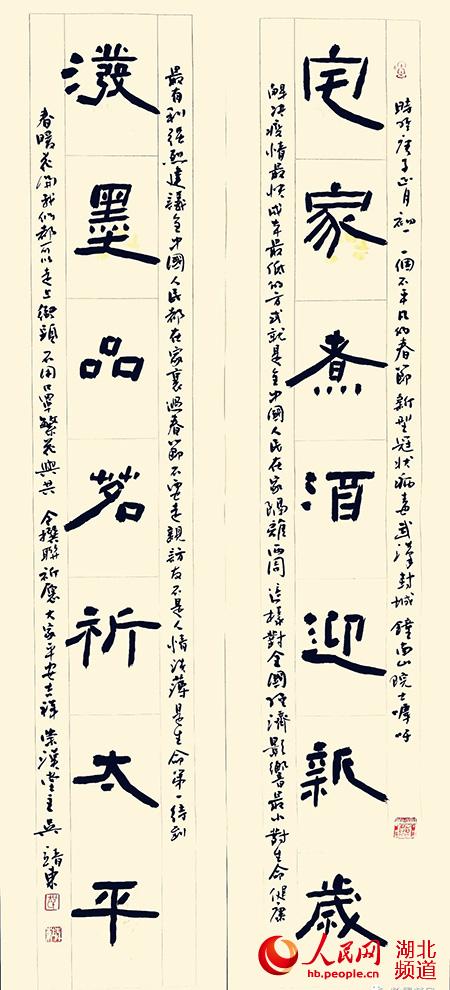 宅家煮酒迎新歲
時維庚子正月初一一個不平凡的春節新型冠狀病毒武漢封城鍾南山院士嘑吁
解决疫情最快成本最低的方式就是全中國人民在家隔離两周這樣對全國经濟影響最小對生命健康
潑墨品茗祈太平
最有利强烈建議全中國人民都在家裏過春節不要走親訪友不是人情淡薄是生命第一待到
春暖花開我们都可以走上街頭不用口罩繁花與共
今撰聯祈愿大家平安吉祥
堂主吳靖東
人民网 湖北频道
hb.people.cn